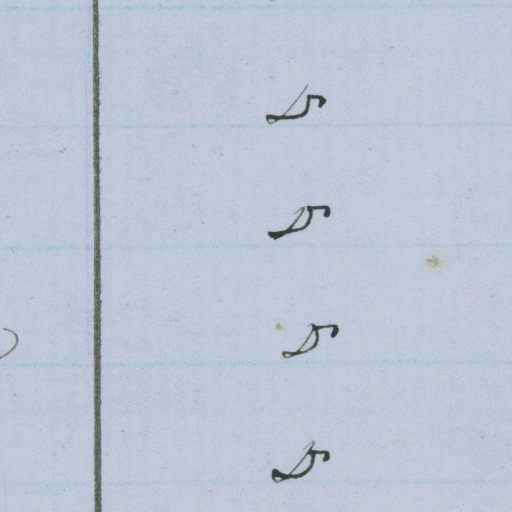 5
5
5
5